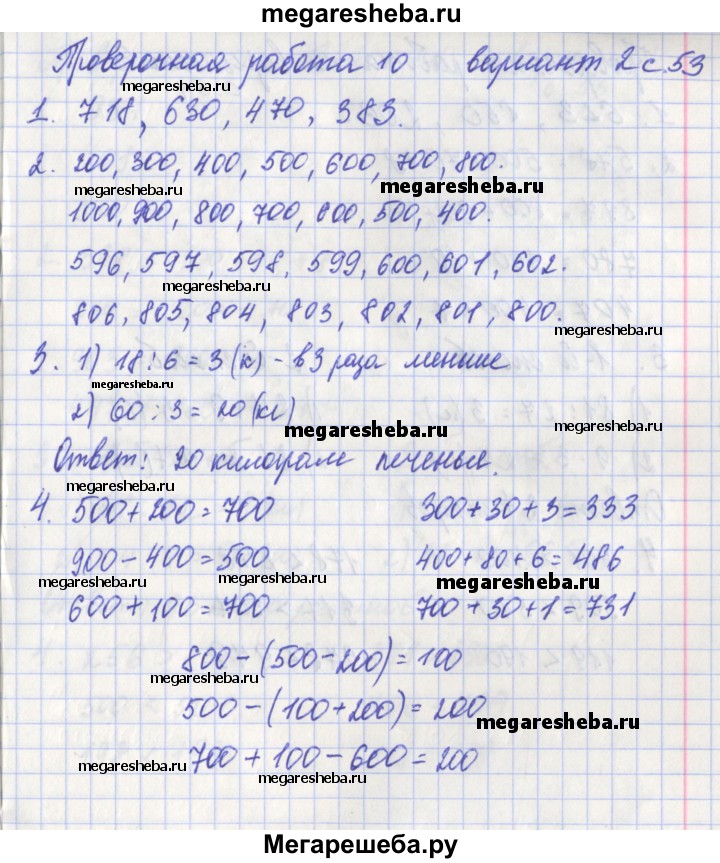 megaresheba.ru
Проверочная работа 10 вариант 2 с. 53
megaresheba.ru
1. 718, 630, 470, 383.
2. 200, 300, 400, 500, 600, 700, 800.
megaresheba.ru megaresheba.ru
1000, 900, 800, 700, 600, 500, 400.
596, 597, 598, 599, 600, 601, 602.
megaresheba.ru
806, 805, 804, 803, 802, 801, 800.
megaresheba.ru
3. 1) 18 : 6 = 3 (к) - в 3 раза меньше
megaresheba.ru
2) 60 : 3 = 20 (кг)
megaresheba.ru
Ответ: 20 килограмм печенья.
megaresheba.ru megaresheba.ru
4. 500 + 200 = 700 300 + 30 + 3 = 333
900 - 400 = 500 400 + 80 + 6 = 486
megaresheba.ru megaresheba.ru megaresheba.ru
600 + 100 = 700 700 + 30 + 1 = 731
800 - (500 - 200) = 100
megaresheba.ru
500 - (100 + 200) = 200
megaresheba.ru
700 + 100 - 600 = 200
megaresheba.ru megaresheba.ru
Мегарешеба.ру